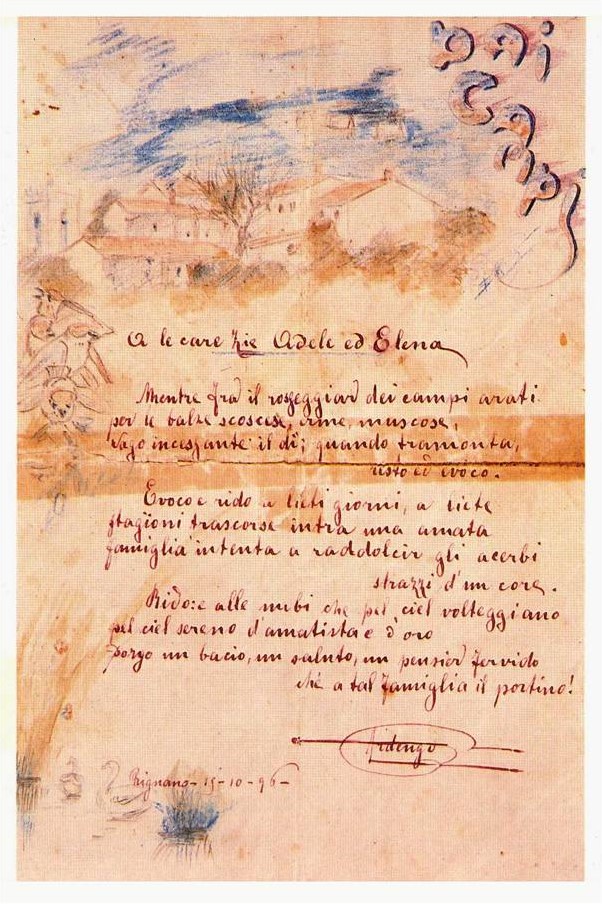 DAI
CAMPI
A le care zie Adele ed Elena
Mentre fra il rosseggiar dei campi arati
per le balze scoscese, erme, muscose,
vago incessante il dì; quando tramonta,
ristò ed evoco.
Evoco e rido a lieti giorni, a liete
stagioni trascorse intra una amata
famiglia intenta a raddolcir gli acerbi
strazzi d'un core.
Rido: e alle nubi che pel ciel volteggiano
pel ciel sereno d'amatista e d'oro
porgo un bacio, un saluto, un pensier fervido
chè a tal famiglia il portino!
Fidengo
Rignano - 15-10-96 -